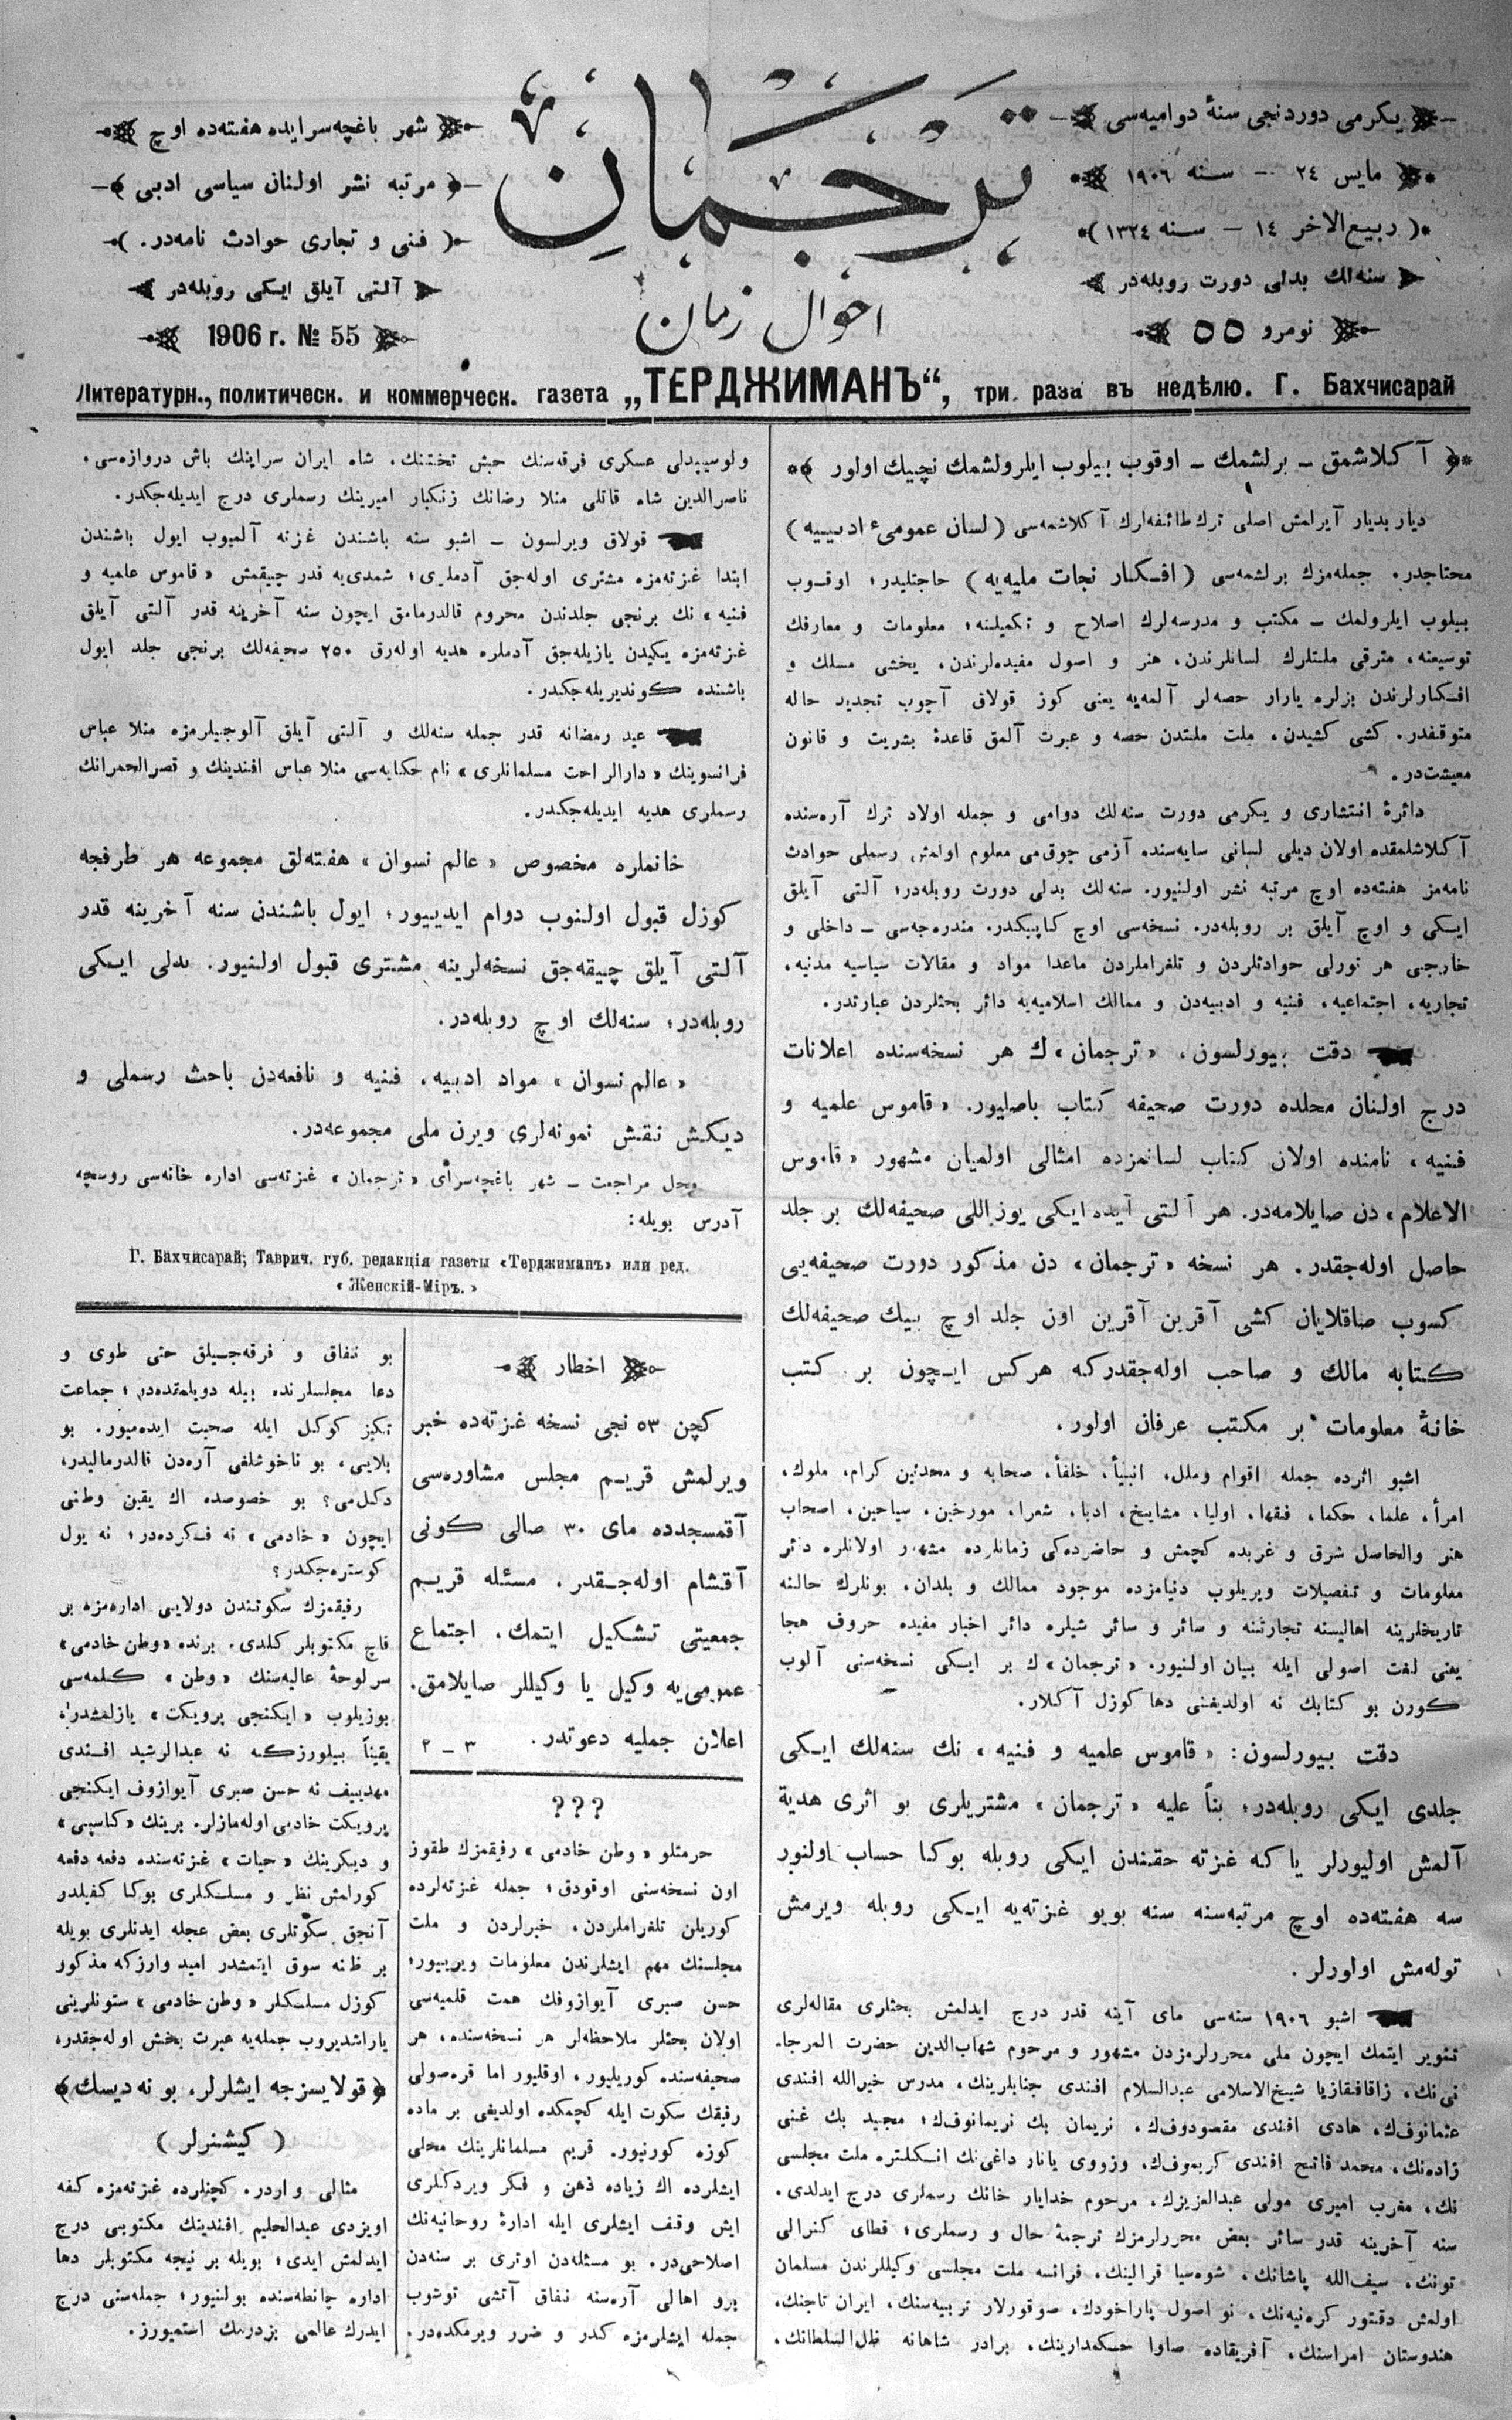 يكرمى دوردنجى سنۀ دواميه‌سى
مايس ٢٤ — سنه ١٩٠٦
( ربيع‌الاخر ١٤ — سنه ١٣٢٤ )
سنه‌لك بدلى دورت روبله‌در
نومرو ٥٥
ترجمان
احوال زمان
شهر باغچه‌سرايده هفته‌ده اوچ
مرتبه نشر اولنان سياسى ادبى
( فنى و تجارى حوادث نامه‌در. )
آلتى آيلق ايكى روبله‌در
1906 г. № 55
Литературн., политическ. и коммерческ. газета „ТЕРДЖИМАНЪ“, три раза въ недѣлю. Г. Бахчисарай
آكلاشمق ـ برلشمك ـ اوقوب بيلوب ايلرولشمك نچيك اولور
ديار بديار آيرلمش اصلى ترك طائفه‌لرك آكلاشمه‌سى ( لسان عمومىء ادبييه )
محتاجدر. جمله‌مزك برلشمه‌سى ( افكار نجات مليه‌يه ) حاجتليدر؛ اوقوب
بيلوب ايلرولمك ـ مكتب و مدرسه‌لرك اصلاح و تكميلنه؛ معلومات و معارفك
توسيعنه، مترقى ملتلرك لسانلرندن، هنر و اصول مفيده‌لرندن، يخشى مسلك و
افكارلرندن بزلره يارار حصه‌لر آلمه‌يه يعنى كوز قولاق آچوب تجديد حاله
متوقفدر. كشى كشيدن، ملت ملتدن حصه و عبرت آلمق قاعدۀ بشريت و قانون
معيشت‌در.
دائرۀ انتشارى و يكرمى دورت سنه‌لك دوامى و جمله اولاد ترك آره‌سنده
آكلاشلمقده اولان ديلى لسانى سايه‌سنده آزمى چوق‌مى معلوم اولمش رسملى حوادث
نامه‌مز هفته‌ده اوچ مرتبه نشر اولنيور. سنه‌لك بدلى دورت روبله‌در؛ آلتى آيلق
ايكى و اوچ آيلق بر روبله‌در. نسخه‌سى اوچ كاپيكدر. مندرجه‌سى ـ داخلى و
خارجى هر تورلى حوادثلردن و تلغراملردن ماعدا مواد و مقالات سياسيه مدنيه،
تجاريه، اجتماعيه، فنيه و ادبيه‌دن و ممالك اسلاميه‌يه دائر بحثلردن عبارتدر.
دقت بيورلسون، « ترجمان »ك هر نسخه‌سنده اعلانات
درج اولنان محلده دورت صحيفه كتاب باصليور. « قاموس علميه و
فنيه » نامنده اولان كتاب لسانمزده امثالى اولميان مشهور « قاموس
الاعلام » دن صايلامه‌در. هر آلتى آيده ايكى يوز اللى صحيفه‌لك بر جلد
حاصل اوله‌جقدر. هر نسخه « ترجمان » دن مذكور دورت صحيفه‌يى
كسوب صاقلايان كشى آقرين آقرين اون جلد اوچ بيك صحيفه‌لك
كتابه مالك و صاحب اوله‌جقدركه هركس ايچون بر كتب
خانۀ معلومات بر مكتب عرفان اولور.
اشبو اثرده جمله اقوام وملل، انبيأ، خلفأ، صحابه و محدثين كرام، ملوك،
امرأ، علما، حكما، فقها، اوليا، مشايخ، ادبا، شعرا، مورخين، سياحين، اصحاب
هنر والحاصل شرق و غربده كچمش و حاضرده‌كى زمانلرده مشهور اولانلره دائر
معلومات و تفصيلات ويريلوب دنيامزده موجود ممالك و بلدان، بونلرك حالنه
تاريخلرينه اهاليسنه تجارتنه و سائر و سائر شيلره دائر اخبار مفيده حروف هجا
يعنى لغت اصولى ايله بيان اولنيور. « ترجمان »ك بر ايكى نسخه‌سنى آلوب
كورن بو كتابك نه اولديغنى دها كوزل آكلار.
دقت بيورلسون: « قاموس علميه و فنيه » نك سنه‌لك ايكى
جلدى ايكى روبله‌در؛ بنأ عليه « ترجمان » مشتريلرى بو اثرى هدية
آلمش اوليورلر ياكه غزته حقندن ايكى روبله بوكا حساب اولنور
سه هفته‌ده اوچ مرتبه‌سنه سنه بويو غزته‌يه ايكى روبله ويرمش
توله‌مش اولورلر.
اشبو ١٩٠٦ سنه‌سى ماى آينه قدر درج ايدلمش بحثلرى مقاله‌لرى
تنوير ايتمك ايچون ملى محررلرمزدن مشهور و مرحوم شهاب‌الدين حضرت المرجا‌ـ
نى‌نك، زاقافقازيا شيخ‌الاسلامى عبدالسلام افندى جنابلرينك، مدرس خيرالله افندى
عثمانوف‌ك، هادى افندى مقصودوف‌ك، نريمان بك نريمانوف‌ك؛ مجيد بك غنى
زاده‌نك، محمد فاتح افندى كريموف‌ك، وزووى يانار داغى‌نك انكلتره ملت مجلسى
نك، مغرب اميرى مولى عبدالعزيزك، مرحوم خدايار خانك رسملرى درج ايدلدى.
سنه آخرينه قدر سائر بعض محررلرمزك ترجمۀ حال و رسملرى؛ قطاى كنرالى
تونك، سيف‌الله پاشانك، شوه‌سيا قرالينك، فرانسه ملت مجلسى وكيللرندن مسلمان
اولمش دقتور كره‌نيه‌نك، نو اصول پاراخودك، صوقورلار تربيه‌سنك، ايران تاجنك،
هندوستان امراسنك، آفريقاده صاوا حكمدارينك، برادر شاهانه ظل‌السلطانك،
ولوسيپدلى عسكرى فرقه‌سنك حبش تختنك، شاه ايران سراينك باش دروازه‌سى،
ناصرالدين شاه قاتلى منلا رضانك زنكبار اميرينك رسملرى درج ايديله‌جكدر.
قولاق ويرلسون ـ اشبو سنه باشندن غزته آلميوب ايول باشندن
ابتدا غزته‌مزه مشترى اوله‌جق آدملرى؛ شمدى‌يه قدر چيقمش « قاموس علميه و
فنيه » نك برنجى جلدندن محروم قالدرمامق ايچون سنه آخرينه قدر آلتى آيلق
غزته‌مزه يكيدن يازيله‌جق آدملره هديه اوله‌رق ٢٥٠ صحيفه‌لك برنجى جلد ايول
باشنده كونديريله‌جكدر.
عيد رمضانه قدر جمله سنه‌لك و آلتى آيلق آلوجيلرمزه منلا عباس
فرانسوينك « دارالراحت مسلمانلرى » نام حكايه‌سى منلا عباس افندينك و قصرالحمرانك
رسملرى هديه ايديله‌جكدر.
خانملره مخصوص « عالم نسوان » هفته‌لق مجموعه هر طرفجه
كوزل قبول اولنوب دوام ايدييور؛ ايول باشندن سنه آخرينه قدر
آلتى آيلق چيقه‌جق نسخه‌لرينه مشترى قبول اولنيور. بدلى ايكى
روبله‌در؛ سنه‌لك اوچ روبله‌در.
« عالم نسوان » مواد ادبيه، فنيه و نافعه‌دن باحث رسملى و
ديكش نقش نمونه‌لرى ويرن ملى مجموعه‌در.
محل مراجعت ـ شهر باغچه‌سراى « ترجمان » غزته‌سى اداره خانه‌سى روسچه
آدرس بويله:
Г. Бахчисарай; Таврич. губ. редакція газеты «Терджиманъ» или ред.
« Женскій-Міръ. »
اخطار
كچن ٥٣ نجى نسخه غزته‌ده خبر
ويرلمش قريم مجلس مشاوره‌سى
آقمسجدده ماى ٣٠ صالى كونى
آقشام اوله‌جقدر. مسئله قريم
جمعيتى تشكيل ايتمك، اجتماع
عمومى‌يه وكيل يا وكيللر صايلامق.
اعلان جمليه دعوتدر. ٣ـ٢
???
حرمتلو « وطن خادمى » رفيقمزك طقوز
اون نسخه‌سنى اوقودق؛ جمله غزته‌لرده
كوريلن تلغراملردن، خبرلردن و ملت
مجلسنك مهم ايشلرندن معلومات ويرييور؛
حسن صبرى آيوازوفك همت قلميه‌سى
اولان بحثلر ملاحظه‌لر هر نسخه‌سنده، هر
صحيفه‌سنده كوريليور، اوقليور اما قره‌صولى
رفيقك سكوت ايله كچمكده اولديغى بر ماده
كوزه كورنيور. قريم مسلمانلرينك محلى
ايشلرده اك زياده ذهن و فكر ويردكلرى
ايش وقف ايشلرى ايله ادارۀ روحانيه‌نك
اصلاحى‌در. بو مسئله‌دن اوترى بر سنه‌دن
برو اهالى آره‌سنه نفاق آتشى توشوب
جمله ايشلرمزه كدر و ضرر ويرمكده‌در.
بو نفاق و فرقه‌جيلق حتى طوى و
دعا مجلسلرنده بيله دويلمقده‌در؛ جماعت
تكيز كوكل ايله صحبت ايده‌ميور. بو
بلايى، بو ناخوشلغى آره‌دن قالدرماليدر،
دكل‌مى؟ بو خصوصده اك يقين وطنى
ايچون « خادمى » نه فكرده‌در؛ نه يول
كوستره‌جكدر؟
رفيقمزك سكوتندن دولايى اداره‌مزه بر
قاچ مكتوبلر كلدى. برنده « وطن خادمى »
سرلوحۀ عاليه‌سنك « وطن » كلمه‌سى
بوزيلوب « ايكنجى پرويكت » يازلمشدر؛
يقيناً بيلورزكه نه عبدالرشيد افندى
مهدييف نه حسن صبرى آيوازوف ايكنجى
پرويكت خادمى اوله‌مازلر. برينك « كاسپى »
و ديكرينك « حيات » غزته‌سنده دفعه دفعه
كورلمش نظر و مسلكلرى بوكا كفيلدر
آنجق سكوتلرى بعض عجله ايدنلرى بويله
بر ظنه سوق ايتمشدر اميد وارزكه مذكور
كوزل مسلكلر « وطن خادمى » ستونلرينى
ياراشديروب جمله‌يه عبرت بخش اوله‌جقدر.
﴿ قولايسزجه ايشلرلر، بو نه ديسك ﴾
( كيشنرلر )
مثالى واردر. كچنلرده غزته‌مزه كفه
اويزدى عبدالحليم افندينك مكتوبى درج
ايدلمش ايدى؛ بويله بر نيجه مكتوبلر دها
اداره چانطه‌سنده بولنيور؛ جمله‌سنى درج
ايدرك عالمى بزدرمك استميورز.